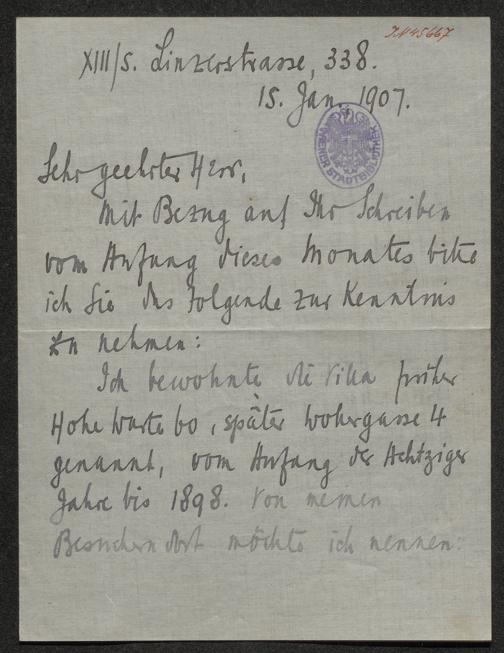 I.N 45667
XIII/5. Linzerstrasse, 338.
15. Jan. 1907.
WIENER STADTBIBLIOTHEK
Sehr geehrter Herr,
Mit Bezug auf Ihr Schreiben
vom Anfang dieses Monates bitte
ich Sie das Folgende zur Kenntnis
zu nehmen:
Ich bewohnte die Villa früher
Hohe Warte 60, später Wollergasse 4
genannt, vom Anfang der Achtziger
Jahre bis 1898. Von meinen
Besuchern dort möchte ich nennen: